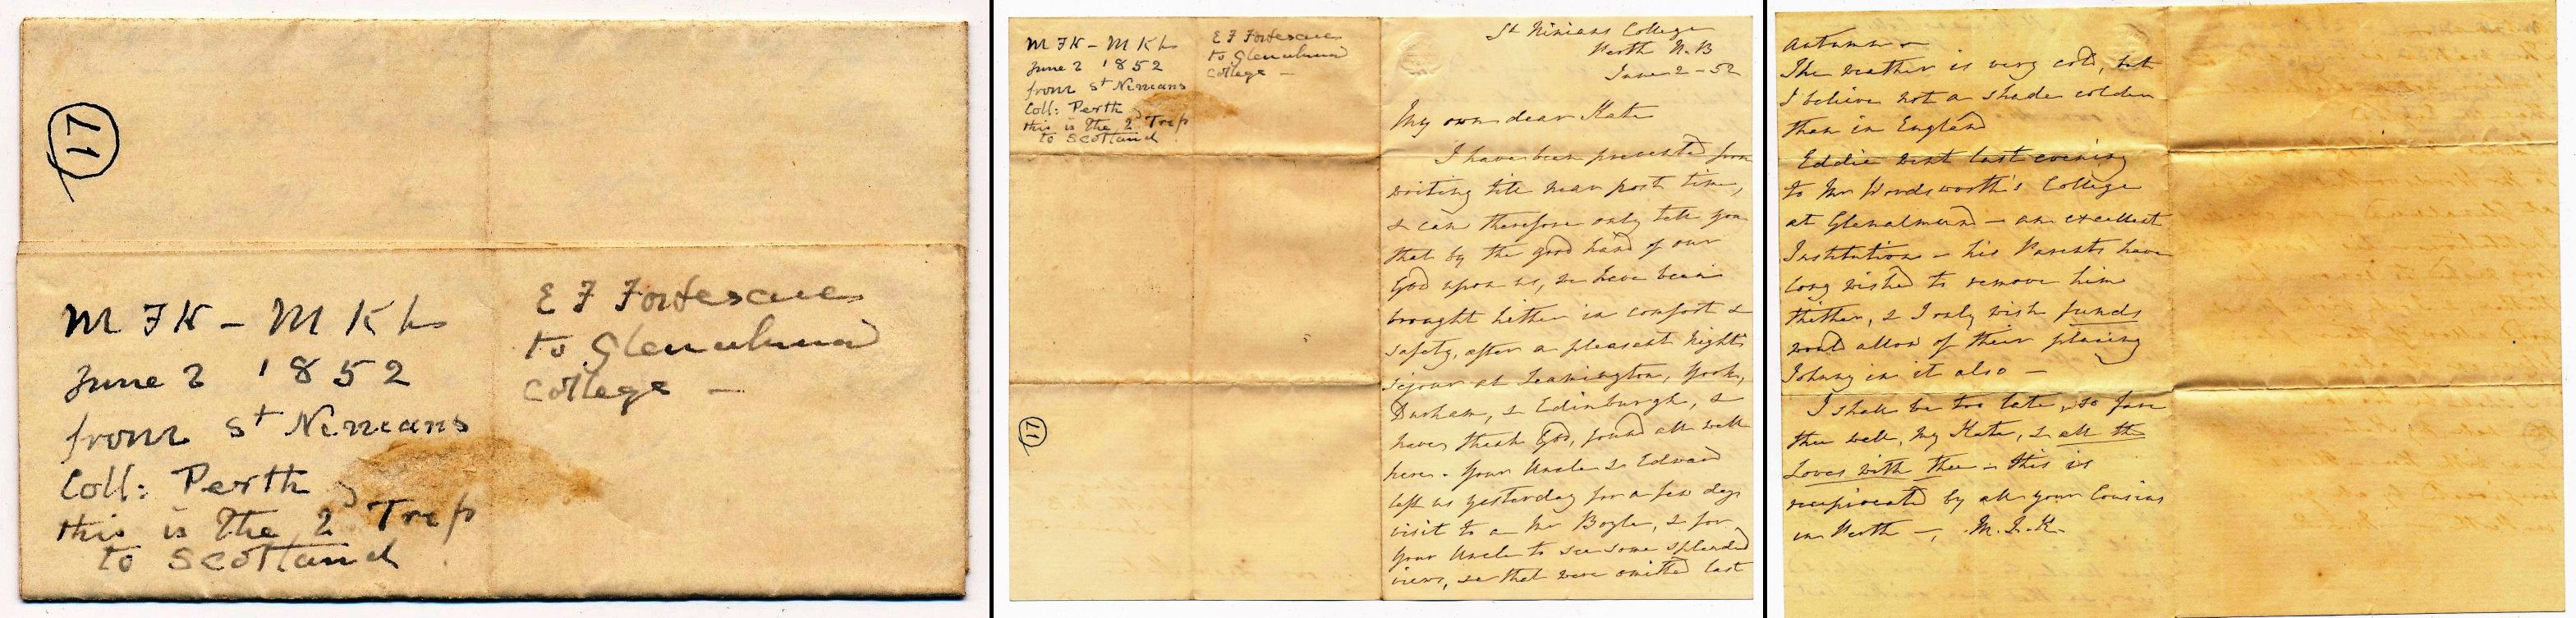 17
M F K - M K L
June 2 1852
from St Ninians
Coll: Perth
this is the 2d Trip
to Scotland
E F Fortescue
to Glenalmond
College -
M F K - M K L
June 2 1852
from St Ninians
Coll: Perth
this is the 2d Trip
to Scotland
E F Fortescue
to Glenalmond
College -
17
St Ninians College
Perth N.B
June 2 - 52
My own dear Kate
I have been prevented from
writing till near post time,
& can therefore only tell you
that by the good hand of our
God upon us, we have been
brought hither in comfort &
safety, after a pleasant night's
sejour at Leamington, York,
Durham, & Edinburgh, &
have, thank God, found all well
here. Your Uncle & Edward
left us yesterday for a few days
visit to a Mr Boyle, & for
your Uncle to see some splendid
views, that were omitted last
Autumn -
The weather is very cold, but
I believe not a shade colder
than in England
Eddie went last evening
to Mr Wordsworth's College
at Glenalmond - an excellent
Institution - his Parents have
long wished to remove him
thither, & I only wish funds
would allow of their placing
Johnny in it also -
I shall be too late, so fare
thee well, my Kate, & all the
Loves with thee - this is
reciprocated by all your Cousins
in Perth -, M.F.K.